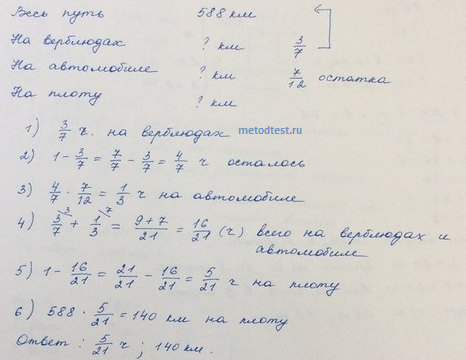 Весь путь 588 км
На верблюдах ? км 3/7
На автомобиле ? км 7/12 остатка
На плоту ? км
1) 3/7 ч. на верблюдах metodtest.ru
2) 1 - 3/7 = 7/7 - 3/7 = 4/7 ч осталось
3) 4/7 · 7/12 = 1/3 ч на автомобиле
4) 3/7 ³ + 1/3 ⁷ = 9+7/21 = 16/21 (ч) всего на верблюдах и
автомобиле
5) 1 - 16/21 = 21/21 - 16/21 = 5/21 ч на плоту
6) 588 · 5/21 = 140 км на плоту
Ответ: 5/21 ч ; 140 км.